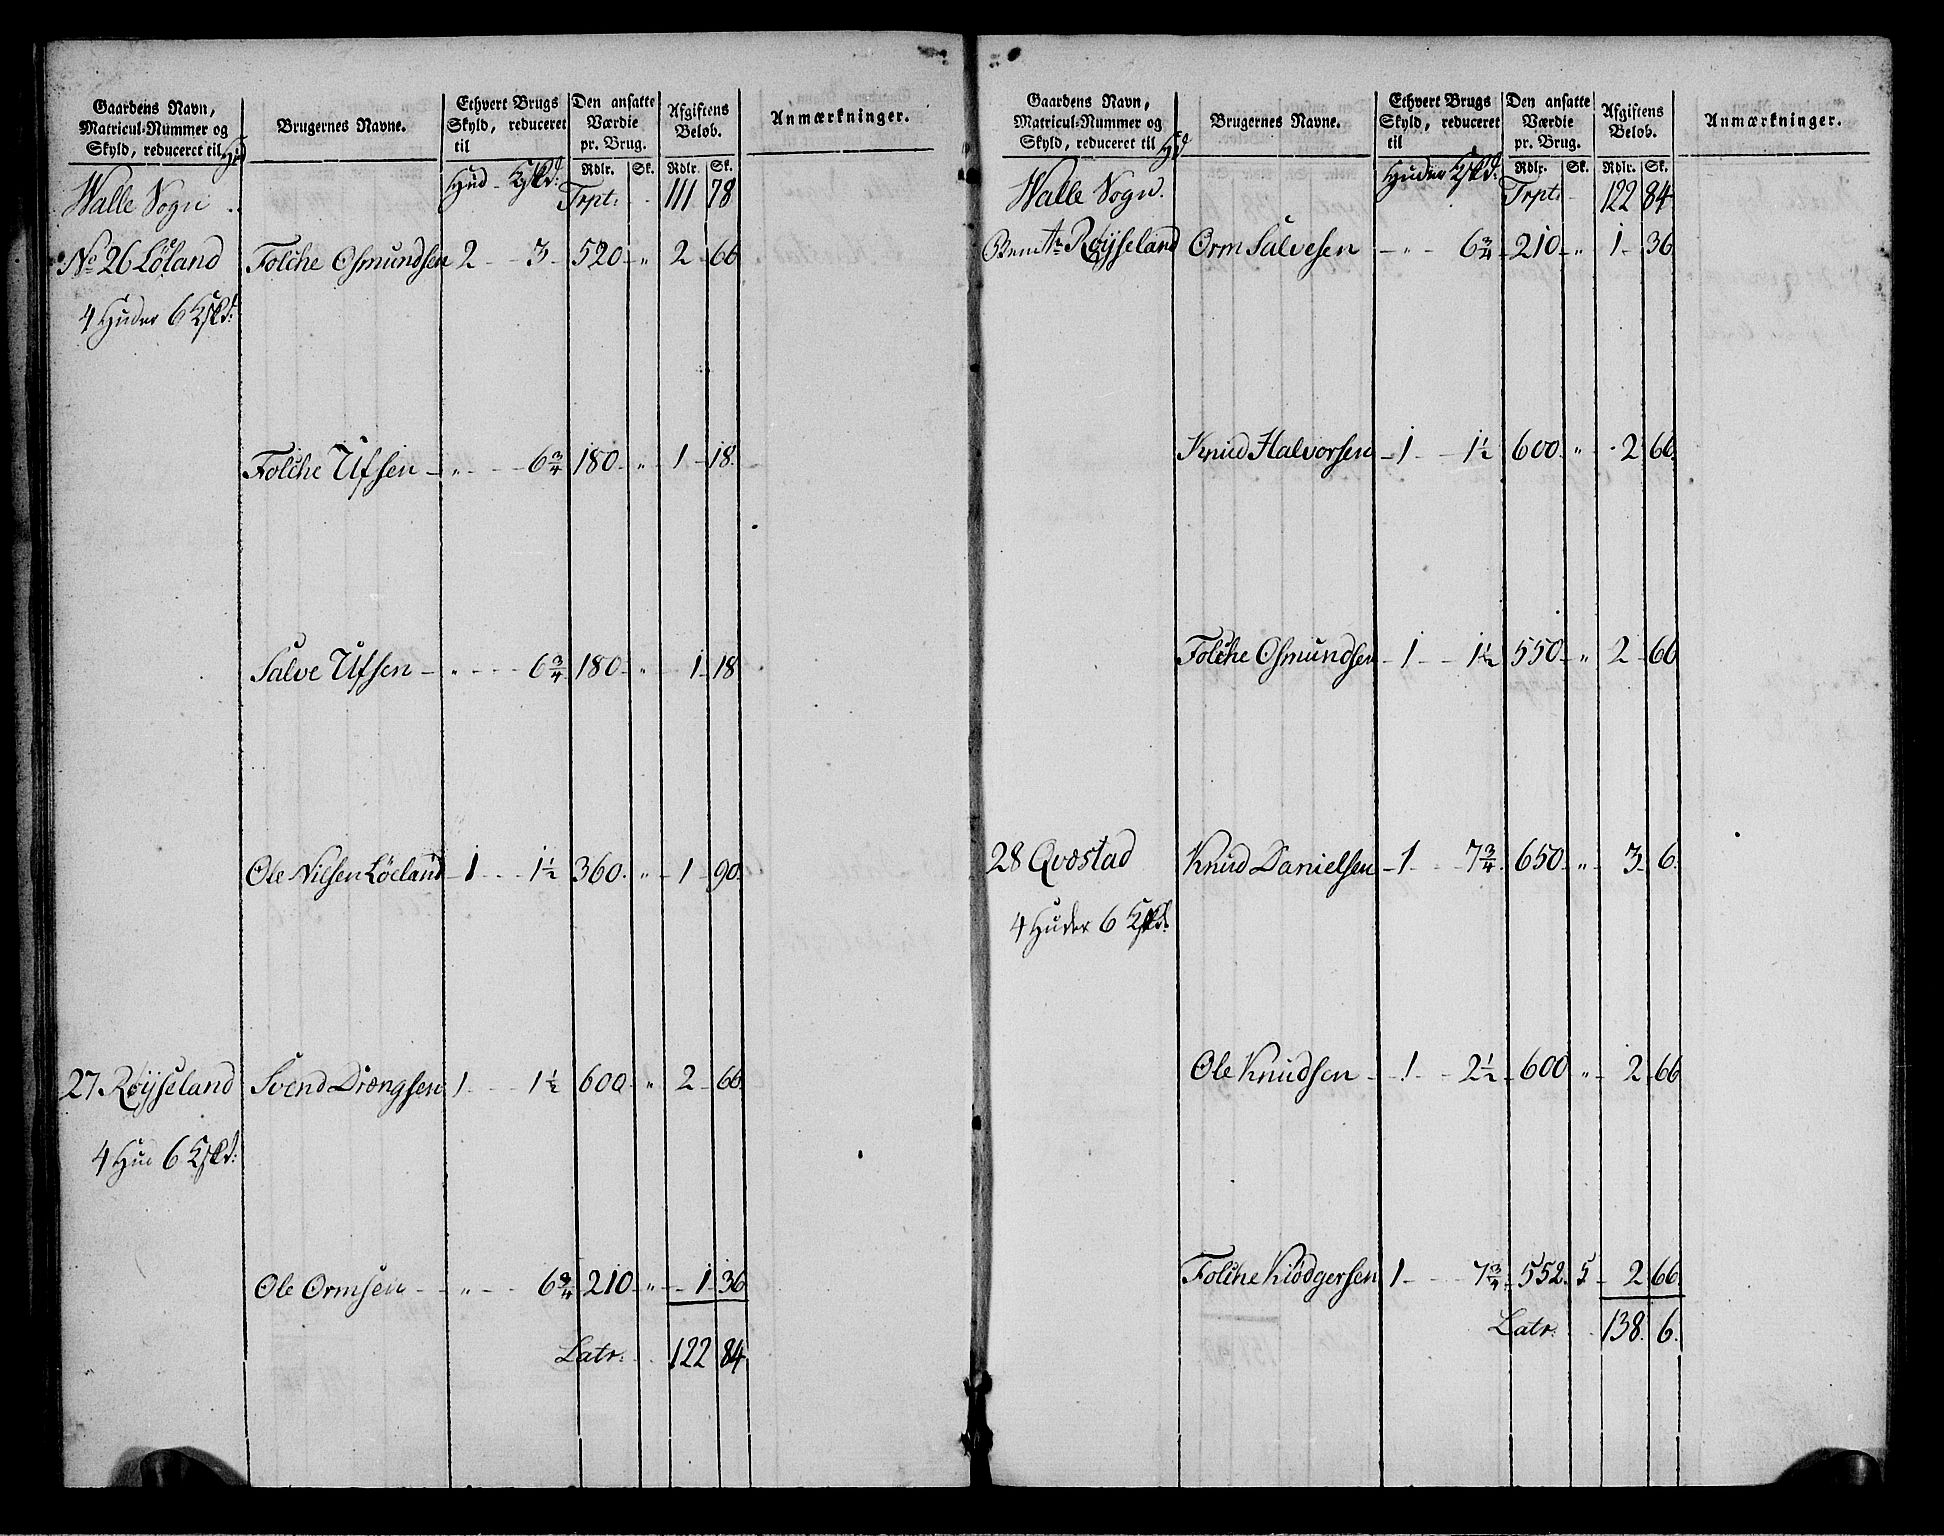 Gaardens Navn, Matricul-Nummer og Skyld, reduceret til Hud
Brugernes Navne.
Ethvert Brugs Skyld, reduceret til
Den ansatte Værdie pr. Brug.
Afgiftens Beløb.
Anmærkninger.
Rdlr. Sk. Rdlr. Sk.
Walle Sogn Hud Trpt: 111 78
No 26 Löland Folche Osmundsen 2 3 520 " 2 66
4 Huder 6
Folche Ufsen " 6 3/4 180 " 1 18
Salve Ufsen " 6 3/4 180 " 1 18
Ole Nilsen Löeland 1 1 1/2 360 " 1 90
27 Røÿseland Svend Drengsen 1 1 1/2 600 " 2 66
4 Hud 6
Ole Ormsen " 6 3/4 210 " 1 36
Latr: 122 84
Gaardens Navn, Matricul-Nummer og Skyld, reduceret til Hud
Brugernes Navne.
Ethvert Brugs Skyld, reduceret til
Den ansatte Værdie pr. Brug.
Afgiftens Beløb.
Anmærkninger.
Rdlr. Sk. Rdlr. Sk.
Walle Sogn. Huder Trpt: 122 84
Røÿseland Orm Salvesen " 6 3/4 210 " 1 36
Knud Halvorsen 1 1 1/2 600 " 2 66
Folche Osmundsen 1 1 1/2 550 " 2 66
28 Qvæstad Knud Danielsen 1 7 3/4 650 " 3 6
4 Huder 6
Ole Knudsen 1 2 1/2 600 " 2 66
Folche Kiödgersen 1 7 3/4 552 5 2 66
Latr: 138 6